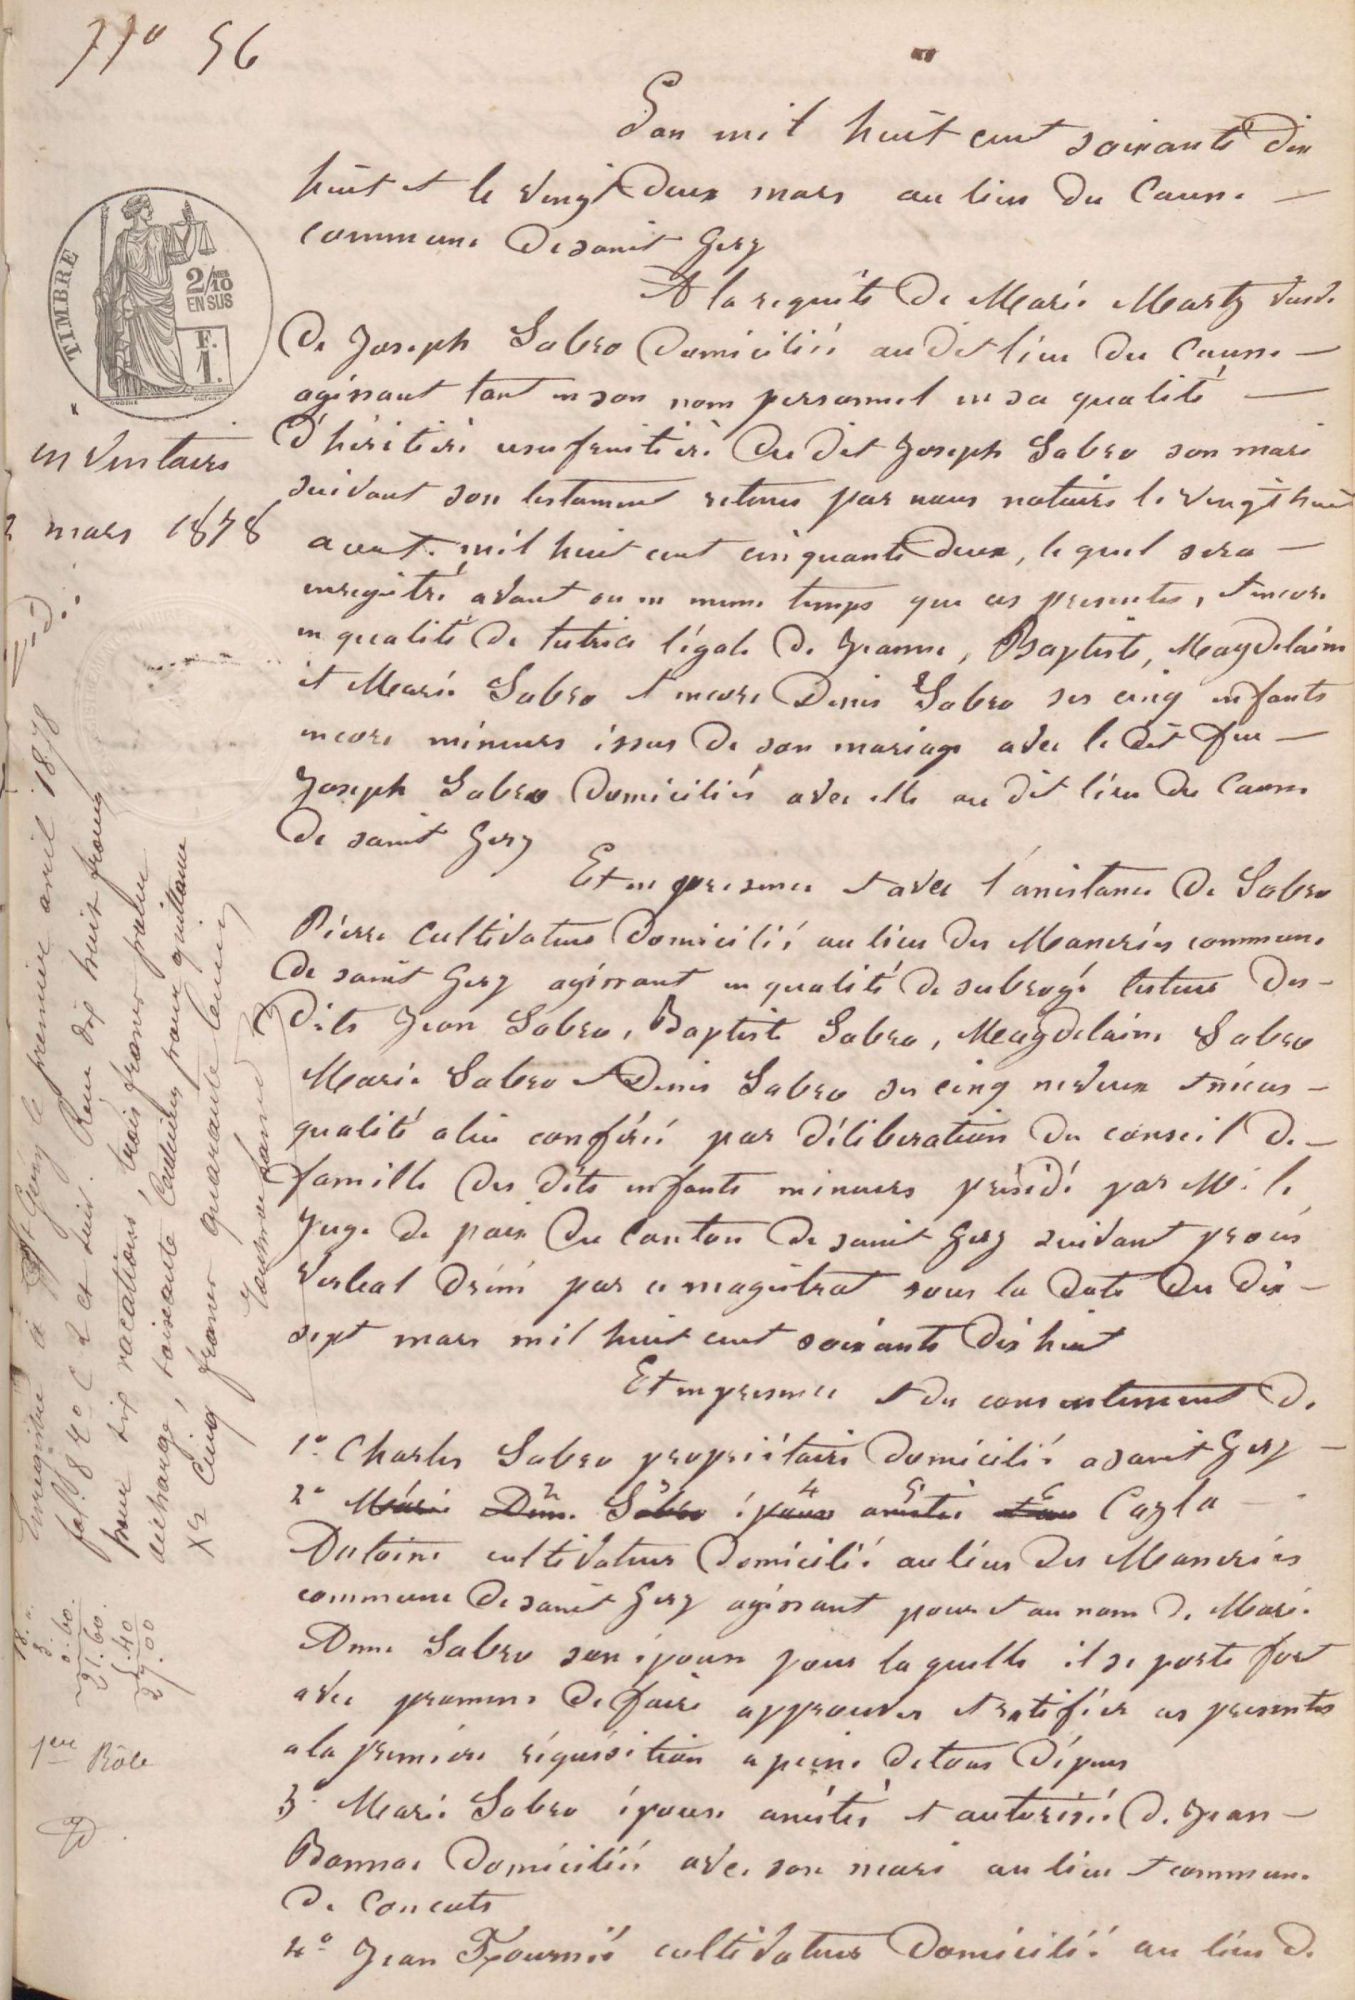 N° 56
TIMBRE
2/10 EN SUS
F. 1.
inventaire
mars 1878
L'an mil huit cent soixante dix
huit et le vingt deux mars au lieu du Caune
commune de saint Gery
A la requête de Marie Marty veuve
de Joseph Sabro domiciliée au dit lieu du Caune
agissant tant en son nom personnel en sa qualité
d'héritière usufruitière du dit Joseph Sabro son mari
suivant son testament retenu par nous notaire le vingt huit
aout mil huit cent cinquante deux, lequel sera
enregitré avant ou en meme temps que ces presentes, et encore
en qualité de tutrice légale de Jeanne, Baptiste, Magdelaine
et Marie Sabro et encore Denis Sabro ses cinq enfants
encore mineurs issus de son mariage avec le dit feu
Joseph Sabro domiciliés avec elle au dit lieu du Caune
de saint Gery
Et en presence et avec l'assistance de Sabro
Pierre cultivateur domicilié au lieu des commune
de saint Gery agissant en qualité de subrogé tuteur des
dits Jean Sabro, Baptiste Sabro, Magdelaine Sabro
Marie Sabro et Denis Sabro ses cinq neveux et nieces
qualité a lui conférée par déliberation du conseil de
famille des dits enfants mineurs présidé par M. le
Juge de paix du canton de saint Gery suivant procès
verbal dréssé par ce magistrat sous la date du dix
sept mars mil huit cent soixante dix huit
Et en presence et du consentement de
1° Charles Sabro propriétaire domicilié a saint Gery
2° Marie Sabro épouse assistée Cayla
Antoine cultivateur domicilié au lieu des
commune de saint Gery agissant pour et au nom de Marie
Anne Sabro son épouse pour laquelle il se porte fort
avec promesse de faire approuver et ratifier ces presentes
a la première réquisition a peine de tous dépens
3° Marie Sabro épouse assistée et autorisée de Jean
Bonnac domiciliée avec son mari au lieu et commune
de Concots
4° Jean Fournié cultivateur domicilié au lieu de
Enregistré à St Géry le premier avril 1878
fol. 84 C 2 et suiv. Reçu dix huit francs
pour six vacations, trois francs pour
décharge, soixante centimes pour quittance
Xes cinq francs quarante centimes
18. "
3. "
0.60.
21.60.
5.40
27.00
1ere Rôle